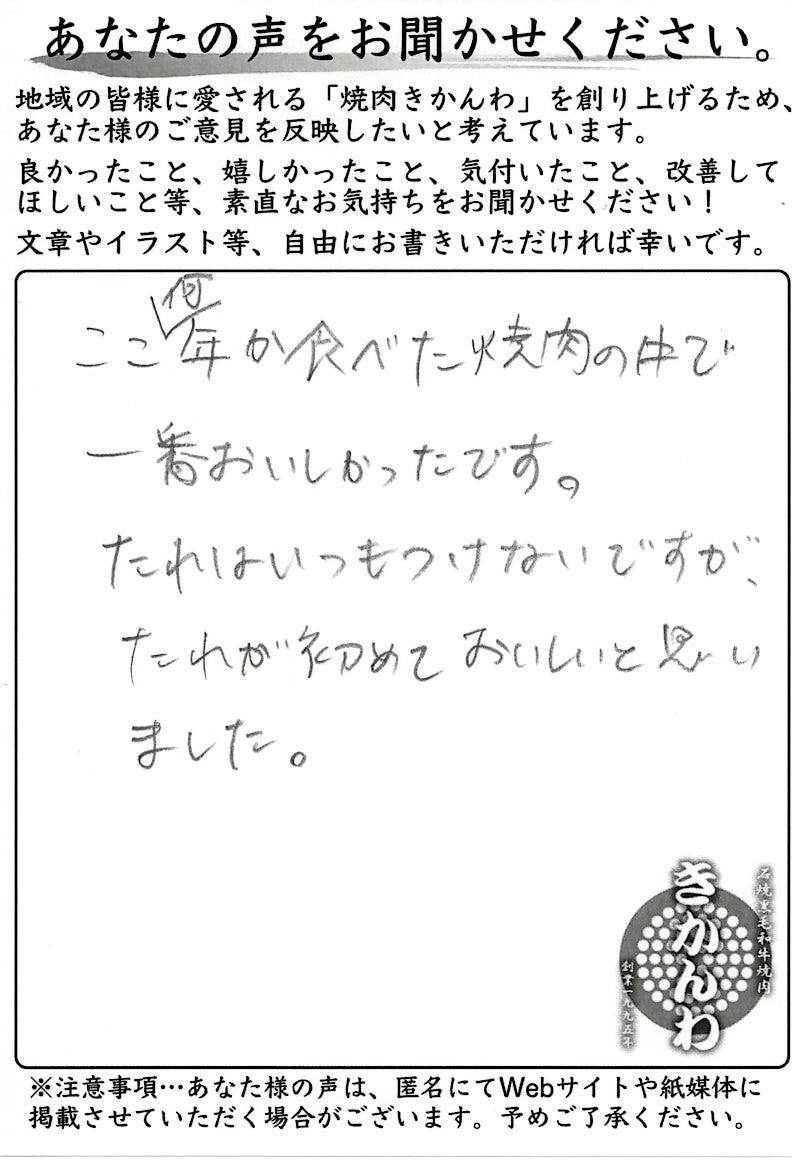 あなたの声をお聞かせください。
地域の皆様に愛される「焼肉きかんわ」を創り上げるため、
あなた様のご意見を反映したいと考えています。
良かったこと、嬉しかったこと、気付いたこと、改善して
ほしいこと等、素直なお気持ちをお聞かせください！
文章やイラスト等、自由にお書きいただければ幸いです。
ここ何年か食べた焼肉の中で
一番おいしかったです。
たれはいつもつけないですが、
たれが初めておいしいと思い
ました。
石焼黒毛和牛焼肉
きかんわ
創業一九九五年
※注意事項…あなた様の声は、匿名にてWebサイトや紙媒体に
掲載させていただく場合がございます。予めご了承ください。